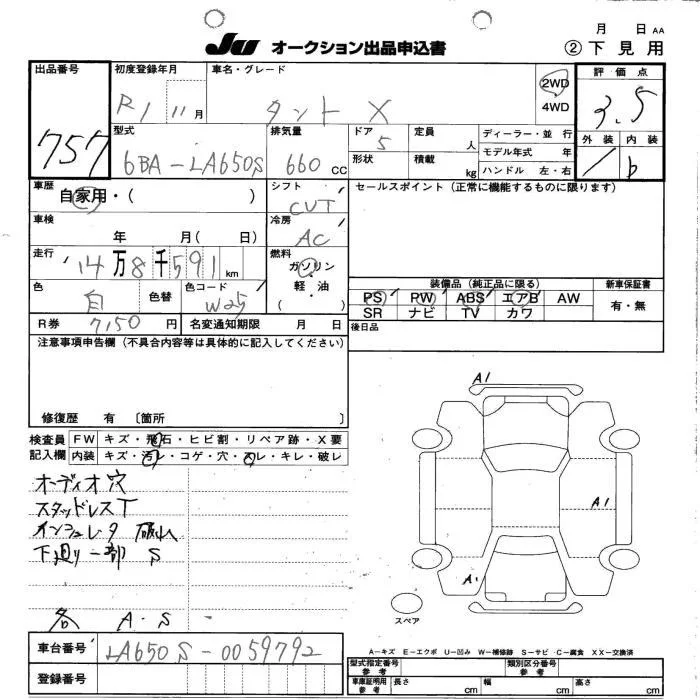 月 日 AA
JU オークション出品申込書 ②下見用
出品番号 初度登録年月 車名・グレード 評価点
757 R1 11月 タント X 2WD 4WD 3.5
型式 排気量 ドア 定員 ディーラー・並行 外装 内装
6BA-LA650S 660cc 5 人 モデル年式 年 b
形状 積載 kg ハンドル 左・右
車歴 シフト セールスポイント(正常に機能するものに限ります)
自家用・( ) CVT
車検 冷房
年 月( 日) AC
走行 燃料
14万8千591km ガソリン・軽油・( )
色 色替 色コード 装備品(純正品に限る) 新車保証書
白 W25 PS PW ABS エアB AW 有・無
SR ナビ TV カワ
R券 7150円 名変通知期限 月 日 後日品
注意事項申告欄(不具合内容等は具体的に記入してください)
修復歴 有 〔箇所 〕
検査員記入欄 FW キズ・飛石・ヒビ割・リペア跡・X要
内装 キズ・汚レ・コゲ・穴・スレ・キレ・破レ
オーディオ穴
スタッドレスT
インシュレタ 破れ
下廻り一部 S
各 A・S
A1
A1
A・
スペア
A-キズ E-エクボ U-凹み W-補修跡 S-サビ C-腐食 XX-交換済
車台番号 LA650S-0059792
登録番号
型式指定番号 参考 類別区分番号 参考
車庫証明用 参考 長さ cm 幅 cm 高さ cm